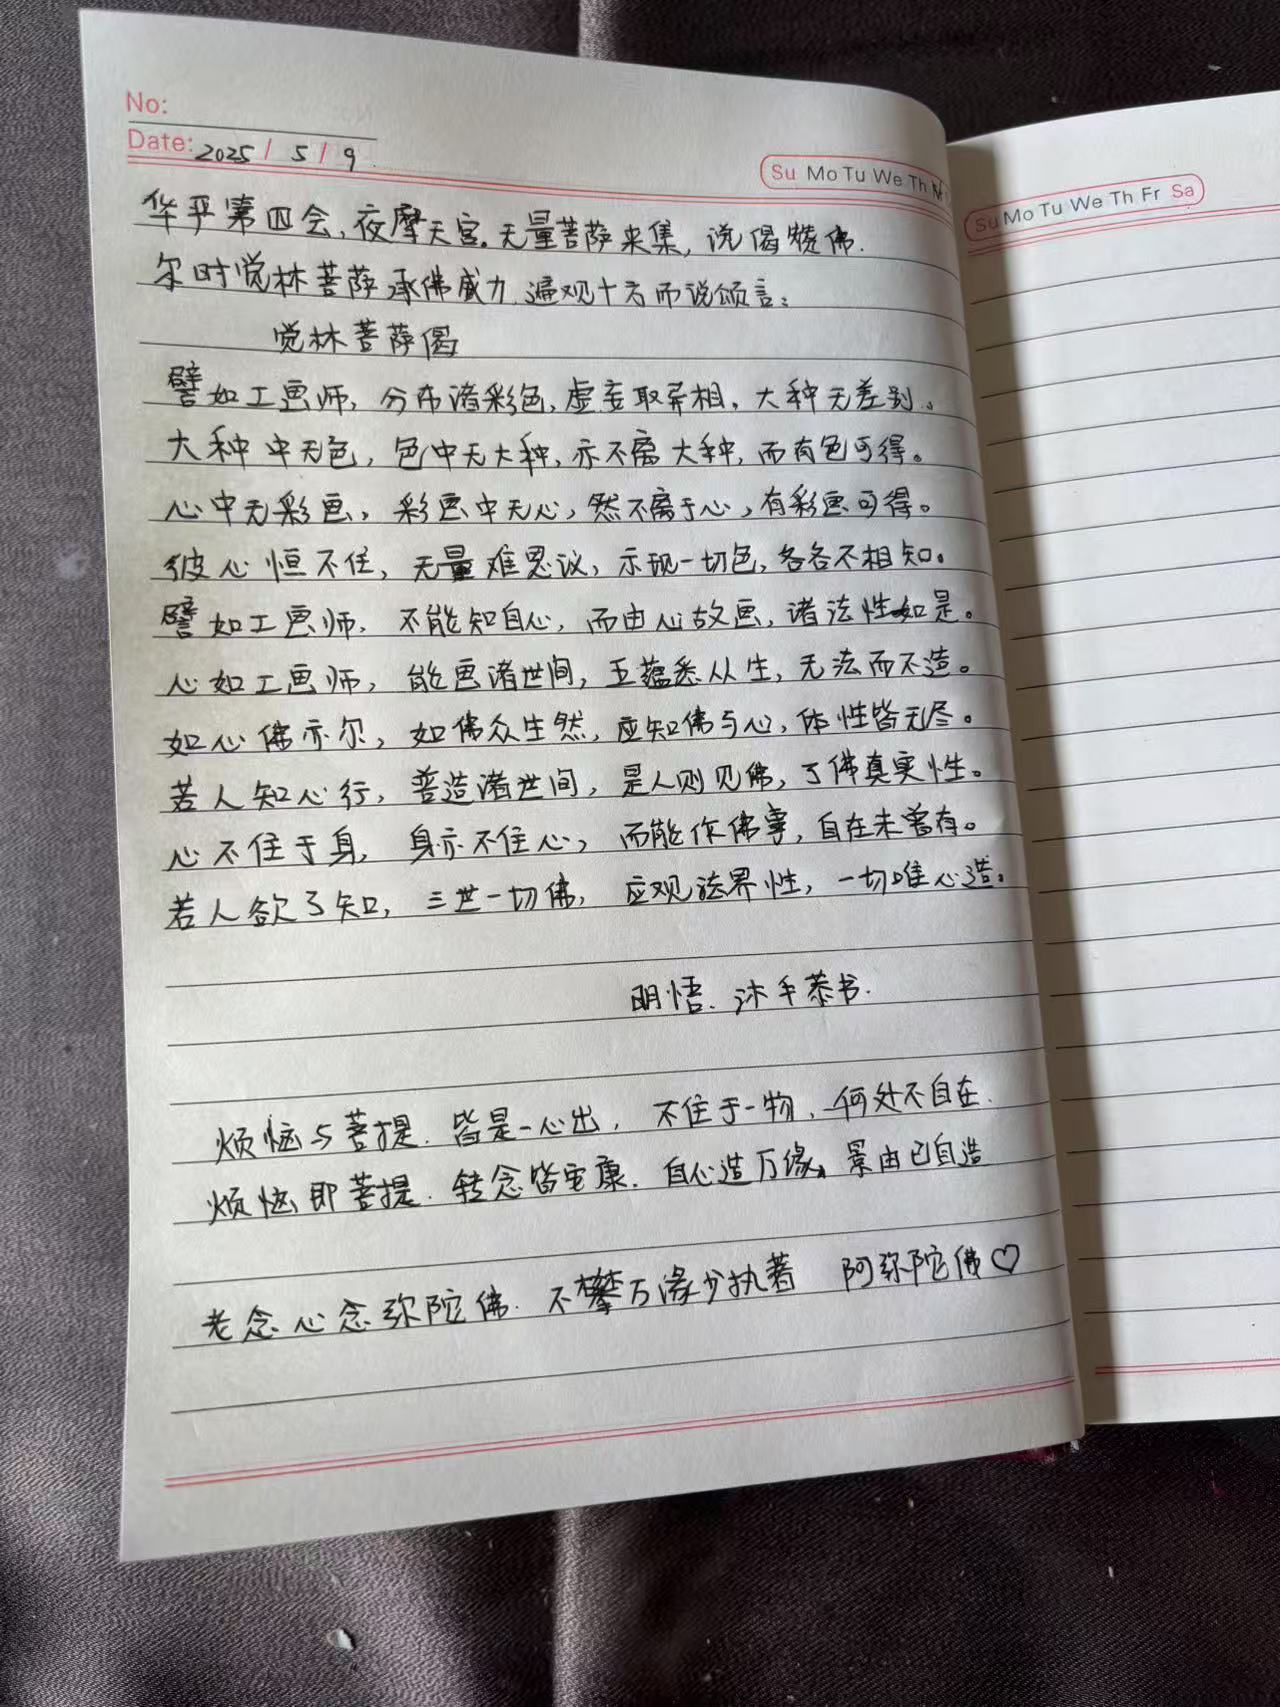 No:
Date: 2025 / 5 / 9
Su Mo Tu We Th
Su Mo Tu We Th Fr Sa
华平第四会,夜摩天宫。无量菩萨来集,说偈赞佛.
尔时觉林菩萨承佛威力,遍观十方而说颂言:
觉林菩萨偈
譬如工画师,分布诸彩色,虚妄取异相,大种无差别。
大种中无色,色中无大种,亦不离大种,而有色可得。
心中无彩画,彩画中无心,然不离于心,有彩画可得。
彼心恒不住,无量难思议,示现一切色,各各不相知。
譬如工画师,不能知自心,而由心故画,诸法性如是。
心如工画师,能画诸世间,五蕴悉从生,无法而不造。
如心佛亦尔,如佛众生然,应知佛与心,体性皆无尽。
若人知心行,普造诸世间,是人则见佛,了佛真实性。
心不住于身,身亦不住心,而能作佛事,自在未曾有。
若人欲了知,三世一切佛,应观法界性,一切唯心造。
明悟.沐手恭书.
烦恼与菩提.皆是一心出,不住于一物,何处不自在.
烦恼即菩提.转念皆安康.自心造万缘。景由己自造
老念心念弥陀佛.不攀万缘少执著 阿弥陀佛♡